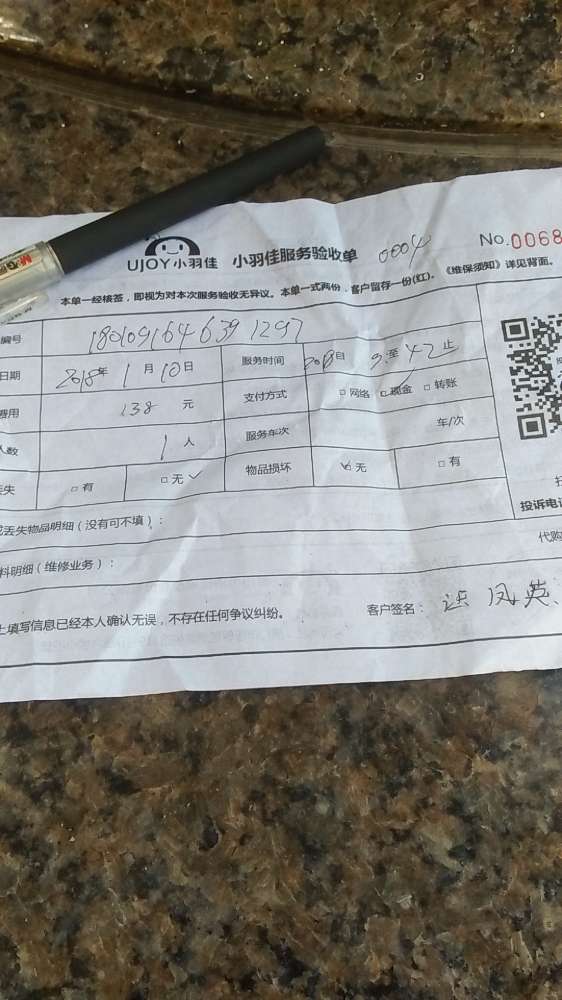 UJOY小羽佳 小羽佳服务验收单 0004 No.0068
本单一经核签，即视为对本次服务验收无异议。本单一式两份，客户留存一份(红)。《维保须知》详见背面。
编号 1801091646391297
日期 2018年 1月10日 服务时间 自 至 止
费用 138 元 支付方式 □网络 □现金 □转账
人数 1人 服务车次 车/次
丢失 □有 □无 物品损坏 □无 □有
投诉电话
或丢失物品明细（没有可不填）：
代购
料明细（维修业务）：
上填写信息已经本人确认无误，不存在任何争议纠纷。 客户签名： 凤英